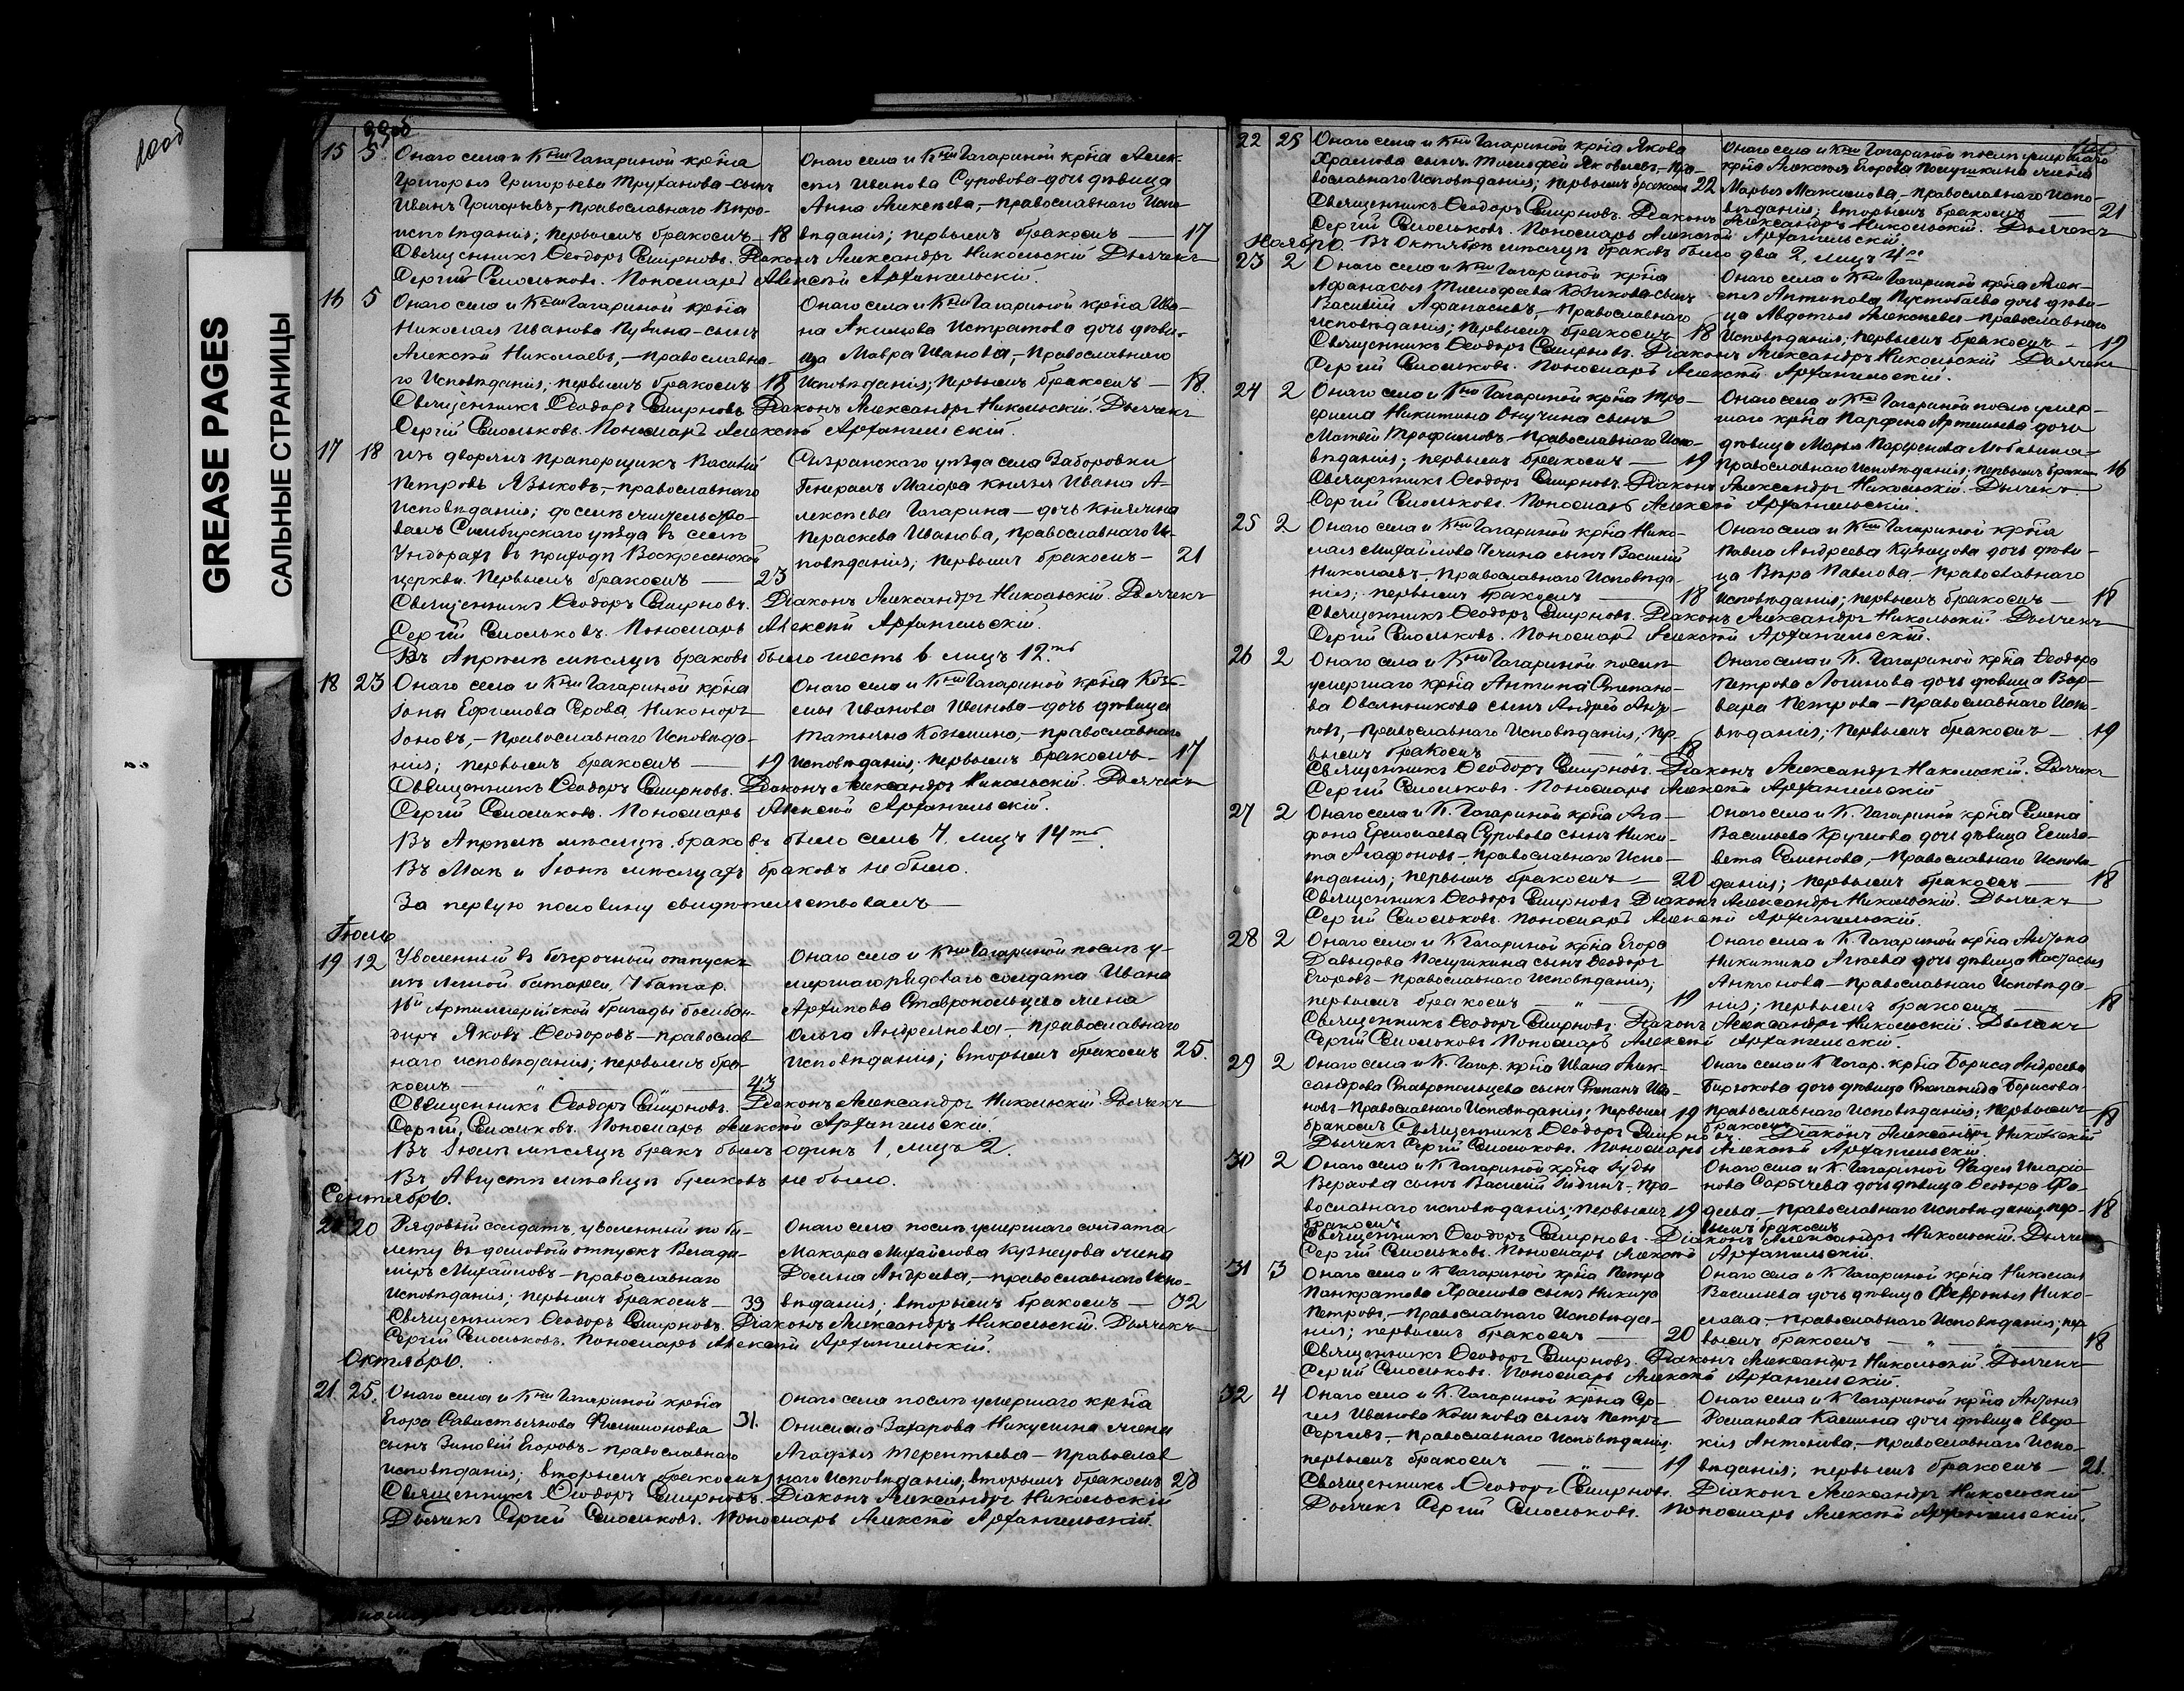 GREASE PAGES
САЛЬНЫЕ СТРАНИЦЫ
15 5 Онаго села и Кнш Гагариной крѣна
Григорья Григорьева Труханова-сынъ
Иванъ Григорьевъ,-православнаго
исповѣданія; первымъ бракомъ 18
Онаго села и Кнш Гагариной крѣна Алек-
сѣя Иванова Суровова-дочь дѣвица
Анна Алексѣева,-православнаго Испо-
вѣданія; первымъ бракомъ — 17
Священникъ Ѳеодоръ Смирновъ. Діаконъ Александръ Никольскій Дьячекъ
Сергій Смольковъ. Пономарь Алексѣй Архангельскій.
16 5 Онаго села и Кнш Гагариной крѣна
Николая Иванова Пузина-сынъ
Алексѣй Николаевъ,-православна-
го Исповѣданія; первымъ бракомъ 18
Онаго села и Кнш Гагариной крѣна Ива-
на Акимова Истратова дочь дѣви-
ца Мавра Иванова,-Православнаго
Исповѣданія; первымъ бракомъ — 18.
Священникъ Ѳеодоръ Смирновъ Діаконъ Александръ Никольскій. Дьячекъ
Сергій Смольковъ. Пономарь Алексѣй Архангельскій.
17 18 изъ дворянъ прапорщикъ Василій
Петровъ Языковъ,-православнаго
исповѣданія; доселѣ
Симбирскаго уѣзда въ селѣ
Ундорахъ въ приходѣ Воскресенской
церкви. Первымъ бракомъ — 23
Сызранскаго уѣзда села Заборовки
Генералъ Маіора князя Ивана А-
лексѣева Гагарина — дочь Княжна
Параскева Иванова, православнаго Ис-
повѣданія; первымъ бракомъ — 21
Священникъ Ѳеодоръ Смирновъ. Діаконъ Александръ Никольскій. Дьячекъ
Сергій Смольковъ. Пономарь Алексѣй Архангельскій.
Въ Апрѣлѣ мѣсяцѣ браковъ было шесть 6 лицъ 12.ть
18 23 Онаго села и Кнш Гагариной крѣна
Іоны Ефимова Серова Никоноръ
Іоновъ,-Православнаго Исповѣда-
нія; первымъ бракомъ — 19
Онаго села и Кнш Гагариной крѣна Козь-
мы Иванова Иванова-дочь дѣвица
Татьяна Козьмина,-православнаго
Исповѣданія; первымъ бракомъ — 17
Священникъ Ѳеодоръ Смирновъ. Діаконъ Александръ Никольскій. Дьячекъ
Сергій Смольковъ. Пономарь Алексѣй Архангельскій.
Въ Апрѣлѣ мѣсяцѣ браковъ было семь 7. лицъ 14ть.
Въ Маѣ и Іюнѣ мѣсяцахъ браковъ не было.
За первую половину свидѣтельствовалъ —
Іюль
19 12 Уволенный въ безсрочный отпускъ
батареи, 7 батар.
Артиллерійской бригады бомбан-
диръ Яковъ Ѳеодоровъ-православ-
наго исповѣданія; первымъ бра-
комъ — 43
Онаго села и Кнш Гагариной послѣ у-
мершаго рядоваго солдата Ивана
Архипова Ставропольцева жена
Ольга Андреянова,-православнаго
Исповѣданія; вторымъ бракомъ 25.
Священникъ Ѳеодоръ Смирновъ. Діаконъ Александръ Никольскій Дьячекъ
Сергій Смольковъ. Пономарь Алексѣй Архангельскій.
Въ Іюлѣ мѣсяцѣ бракъ былъ одинъ 1, лицъ 2.
Въ Августѣ мѣсяцѣ браковъ не было.
Сентябрь.
20 20 Рядовый солдатъ, уволенный по би-
лету въ домовой отпускъ Влади-
міръ Михайловъ-православнаго
Исповѣданія; первымъ бракомъ — 39
Онаго села послѣ умершаго солдата
Макара Михайлова Кузнецова жена
Домна Андреева,-православнаго Испо-
вѣданія; вторымъ бракомъ — 32
Священникъ Ѳеодоръ Смирновъ. Діаконъ Александръ Никольскій. Дьячекъ
Сергій Смольковъ. Пономарь Алексѣй Архангельскій.
Октябрь.
21. 25. Онаго села и Кнш Гагариной крѣна
Егора Савастьянова Филимонова 31.
сынъ Зиновій Егоровъ-православнаго
исповѣданія; вторымъ бракомъ
Онаго села послѣ умершаго крѣна
Онисима Захарова Никулина жена
Агафья Терентьева-Православ
наго Исповѣданія, вторымъ бракомъ 28
Священникъ Ѳеодоръ Смирновъ. Діаконъ Александръ Никольскій
Дьячекъ Сергій Смольковъ. Пономарь Алексѣй Архангельскій.
22 25 Онаго села и Кнш Гагариной крѣна Якова
Храмова сынъ Тимофей Яковлевъ,-Пра-
вославнаго Исповѣданія; первымъ бракомъ 22
Онаго села и Кнш Гагариной послѣ умершаго
крѣна Алексѣя Егорова Полушкина жена
Марья Максимова,-православнаго Испо-
вѣданія; вторымъ бракомъ — 21
Священникъ Ѳеодоръ Смирновъ. Діаконъ Александръ Никольскій. Дьячекъ
Сергій Смольковъ. Пономарь Алексѣй Архангельскій.
Ноябрь Въ Октябрѣ мѣсяцѣ браковъ было два 2, лицъ 4
23 2 Онаго села и Кнш Гагариной крѣна
Афанасья Тимофеева сынъ
Василій Афанасьевъ,-Православнаго
Исповѣданія; первымъ бракомъ 18
Онаго села и Кнш Гагариной крѣна Алек-
сѣя Антипова Пустобаева дочь дѣви-
ца Авдотья Алексѣева-православнаго
Исповѣданія; первымъ бракомъ — 19
Священникъ Ѳеодоръ Смирновъ. Діаконъ Александръ Никольскій Дьячекъ
Сергій Смольковъ. Пономарь Алексѣй Архангельскій.
24 2 Онаго села и Кнш Гагариной крѣна Тро-
фима Никитина Онучина сынъ
Матвей Трофимовъ-православнаго Испо-
вѣданія; первымъ бракомъ — 19
Онаго села и Кнш Гагариной послѣ умер-
шаго крѣна Парфена Артемьева дочь
дѣвица Марья Парфенова
Православнаго Исповѣданія; первымъ брако- 16
Священникъ Ѳеодоръ Смирновъ. Діаконъ Александръ Никольскій. Дьячекъ
Сергій Смольковъ. Пономарь Алексѣй Архангельскій.
25 2 Онаго села и Кнш Гагариной крѣна Нико-
лая Михайлова сынъ Василій
Николаевъ-Православнаго Исповѣда-
нія; первымъ бракомъ — 18
Онаго села и Кнш Гагариной крѣна
Павла Андреева Кузнецова дочь дѣви-
ца Вѣра Павлова-православнаго
Исповѣданія; первымъ бракомъ — 18
Священникъ Ѳеодоръ Смирновъ. Діаконъ Александръ Никольскій Дьячекъ
Сергій Смольковъ. Пономарь Алексѣй Архангельскій.
26 2 Онаго села и Кнш Гагариной послѣ
умершаго крѣна Антипа Степано-
ва Овсянникова сынъ Андрей Анти-
повъ,-Православнаго Исповѣданія; пер
вымъ бракомъ — 18
Онаго села и К. Гагариной крѣна Ѳеодора
Петрова Логинова дочь дѣвица Вар-
вара Петрова-Православнаго Испо-
вѣданія; первымъ бракомъ — 19
Священникъ Ѳеодоръ Смирновъ. Діаконъ Александръ Никольскій. Дьячекъ
Сергій Смольковъ. Пономарь Алексѣй Архангельскій
27 2 Онаго села и К. Гагариной крѣна Ага-
фона Ермолаева Суровова сынъ Ники-
та Агафоновъ-Православнаго Испо-
вѣданія; первымъ бракомъ — 20
Онаго села и К. Гагариной крѣна Семена
Васильева Круглова дочь дѣвица Елиса-
вета Семенова,-православнаго Исповѣ-
данія; первымъ бракомъ — 18
Священникъ Ѳеодоръ Смирновъ Діаконъ Александръ Никольскій. Дьячекъ
Сергій Смольковъ. Пономарь Алексѣй Архангельскій.
28 2 Онаго села и К Гагариной крѣна Егора
Давыдова Полушкина сынъ Ѳеодоръ
Егоровъ-Православнаго Исповѣданія;
первымъ бракомъ — " — 19
Онаго села и К. Гагариной крѣна Антона
Никитина Агѣева дочь дѣвица Настасья
Антонова-Православнаго Исповѣда-
нія; первымъ бракомъ — 18
Священникъ Ѳеодоръ Смирновъ. Діаконъ Александръ Никольскій. Дьячекъ
Сергій Смольковъ Пономарь Алексѣй Архангельскій.
29 2 Онаго села и К. Гагар. крѣна Ивана Алек-
сандрова Ставропольцева сынъ Степанъ Ива-
новъ-Православнаго Исповѣданія; первымъ 19
бракомъ
Онаго села и К Гагар. крѣна Бориса Андреева
Бирюкова дочь дѣвица Степанида Борисова-
православнаго Исповѣданія; первымъ — 18
бракомъ
Священникъ Ѳеодоръ Смирновъ. Діаконъ Александръ Никольскій
Дьячекъ Сергій Смольковъ. Пономарь Алексѣй Архангельскій.
30 2 Онаго села и К Гагариной крѣна Іуды
сынъ Василій Іюдинъ-Пра-
вославнаго исповѣданія; первымъ 19
бракомъ
Онаго села и К Гагариной Фадея Иларіо-
нова Сарычева дочь дѣвица Ѳеодора Фа-
деева-Православнаго Исповѣданія; пер- 18
вымъ бракомъ
Священникъ Ѳеодоръ Смирновъ. Діаконъ Александръ Никольскій. Дьячекъ
Сергій Смольковъ. Пономарь Алексѣй Архангельскій.
31 3 Онаго села и К Гагариной крѣна Петра
Панкратова Храмова сынъ Никита
Петровъ,-Православнаго Исповѣда-
нія; первымъ бракомъ — 20
Онаго села и К Гагариной крѣна Николая
Васильева дочь дѣвица Февронья Нико-
лаева,-Православнаго Исповѣданія; пер
вымъ бракомъ — " — 18
Священникъ Ѳеодоръ Смирновъ. Діаконъ Александръ Никольскій. Дьячекъ
Сергій Смольковъ. Пономарь Алексѣй Архангельскій.
32 4 Онаго села и К. Гагариной крѣна Сер-
гея Иванова Кошкова сынъ Петръ
Сергеевъ,-Православнаго Исповѣданія.
первымъ бракомъ — " — 19
Онаго села и К Гагариной крѣна Антона
Романова Кашина дочь дѣвица Евдо-
кія Антонова,-православнаго Испо-
вѣданія; первымъ бракомъ — 21.
Священникъ Ѳеодоръ Смирновъ. Діаконъ Александръ Никольскій
Дьячекъ Сергій Смольковъ. Пономарь Алексѣй Архангельскій.